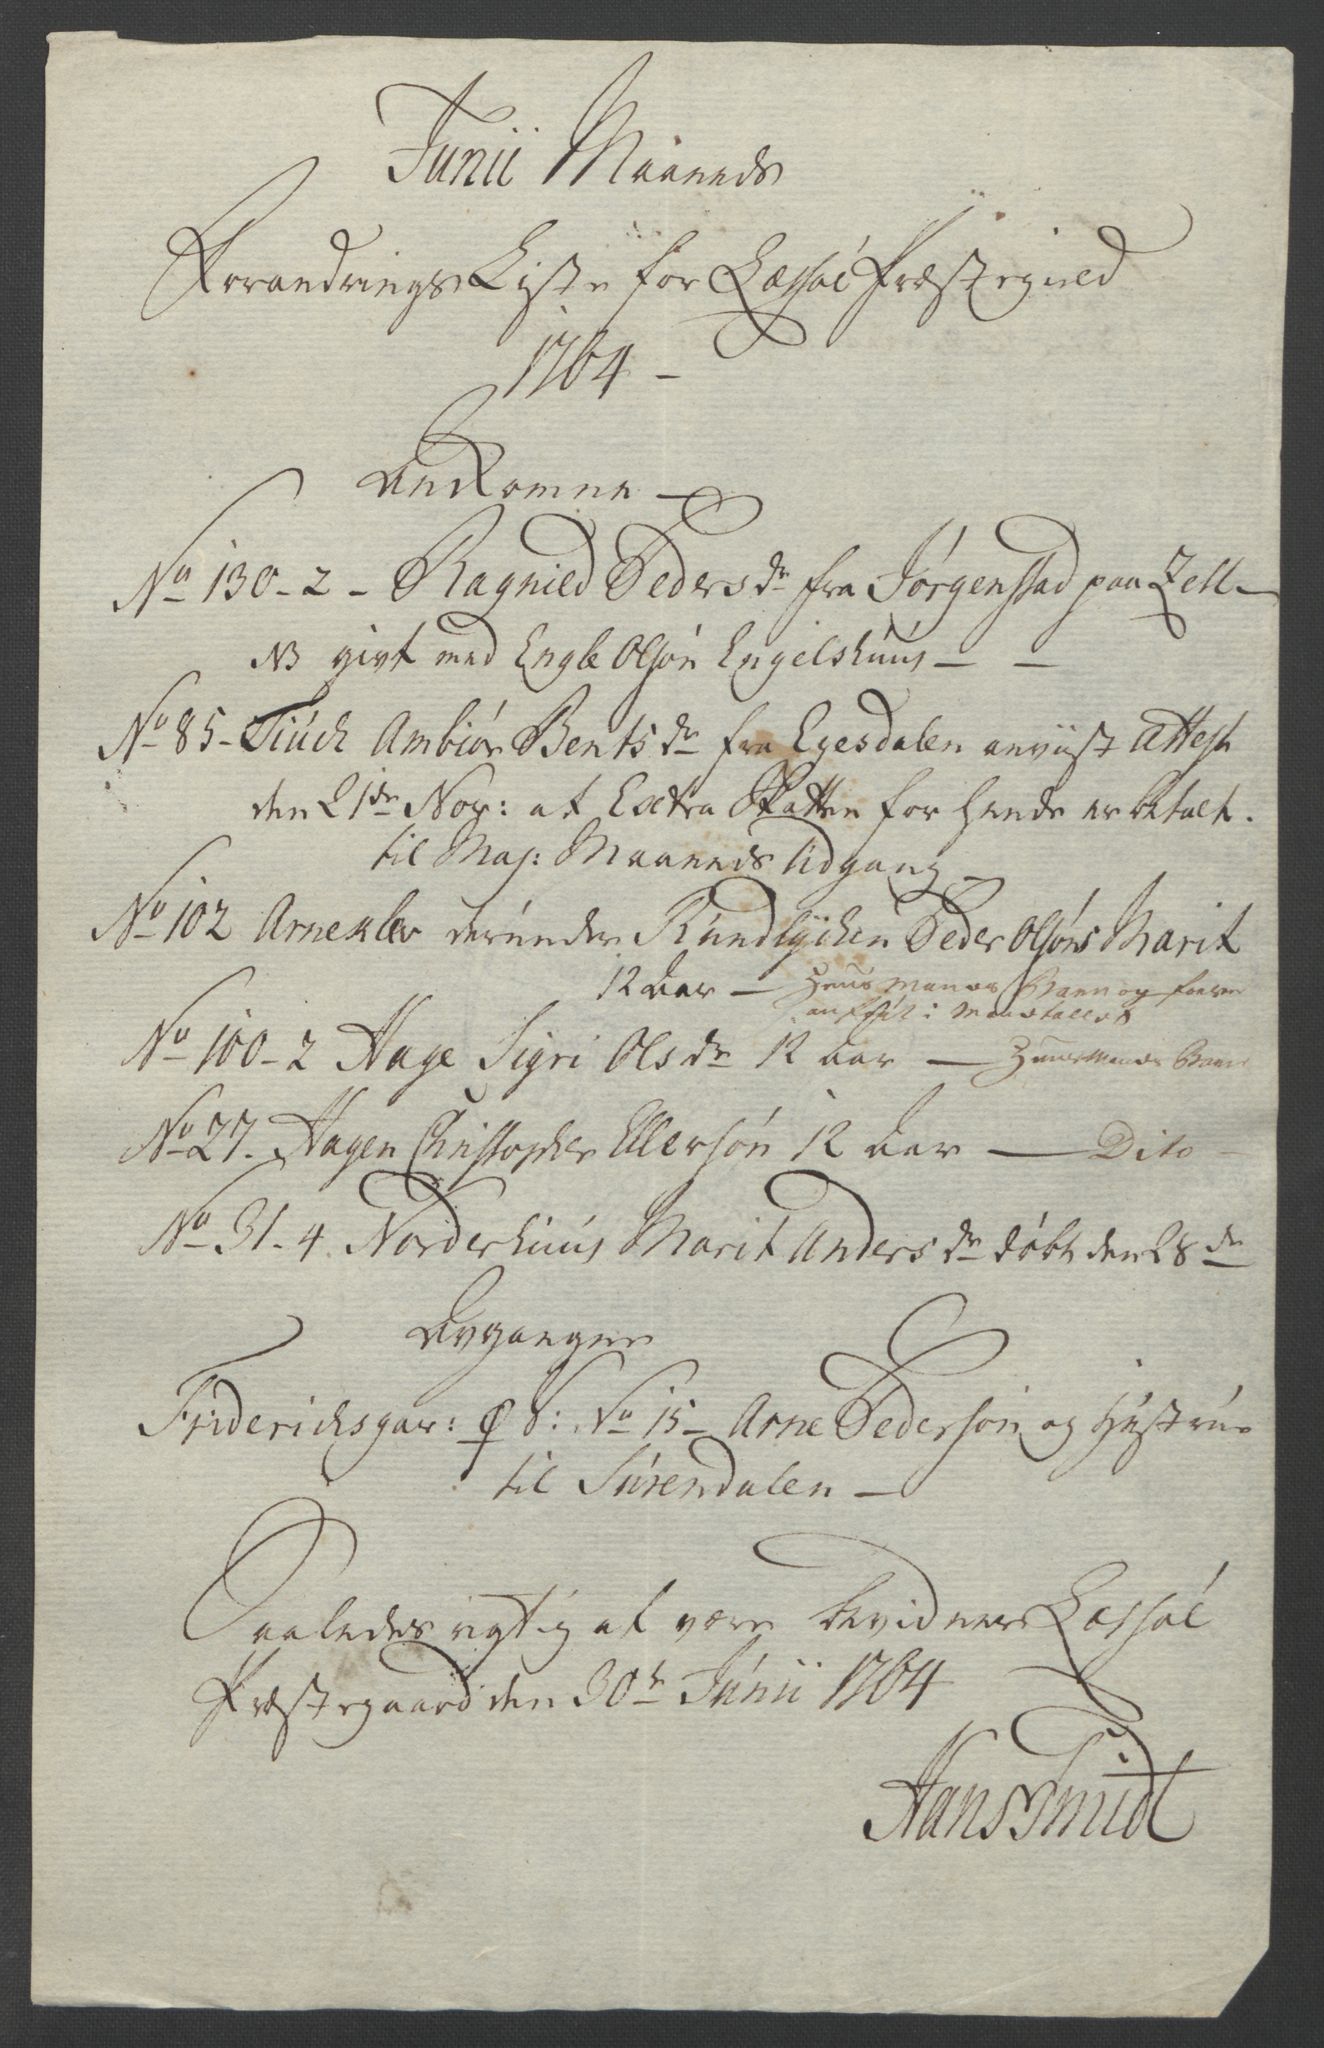 Junii Maaneds
Forandrings Liste for Læssøe Præstegield
1764 –
Ankomne –
No 130 - 2 - Ragnild Peders dr fra Jørgenstad paa
NB givt med Engle Olsøn Engelshuus – –
No 85 - Ambiør Bents dr fra Egesdalen anviist Attest
den 21de Nov: at Extra Skatten for hende er betalt.
til Maj: Maaneds Udgang –
No 102 Arneklev derunder Peder Olsøns Marit
12 Aar – Huus Mands Barn og
No 100 - 2 Hage Sigri Ols dr 12 Aar – Huusmands Barn
No 27. Hagen Christopher Ellersøn 12 Aar – Dito –
No 31 - 4. Norderhuus Marit Anders dr døbt den 28de
Avgangne
Friderichsgav: No 15 – Arne Pedersøn og Hustrue
til Surendalen –
Saaledes rigtig at være bevidner Læssøe
Præstegaard den 30te Junii 1764
Hans Smidt